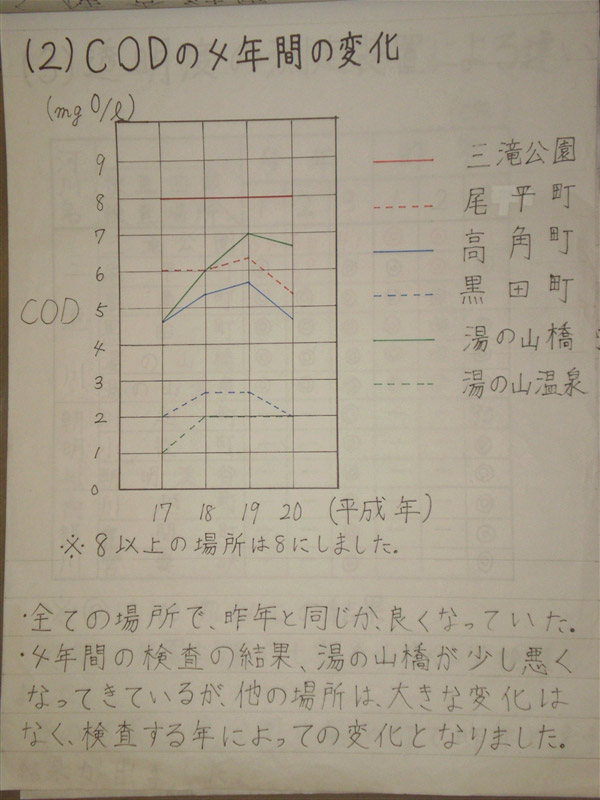 (2) CODの4年間の変化
(mg O/l)
9
8
7
6
COD 5
4
3
2
1
0
17 18 19 20 (平成年)
三滝公園
尾平町
高角町
黒田町
湯の山橋
湯の山温泉
※8以上の場所は8にしました。
・全ての場所で、昨年と同じか、良くなっていた。
・4年間の検査の結果、湯の山橋が少し悪く
なってきているが、他の場所は、大きな変化は
なく、検査する年によっての変化となりました。